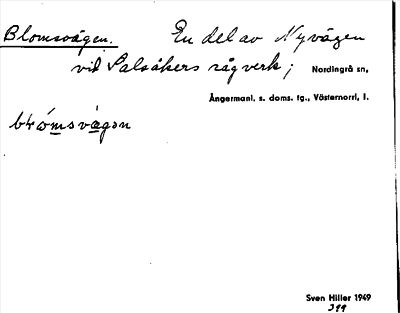 Blomsvägen. En del av Nyvägen
vid Salsåkers sågverk; Nordingrå sn,
Ångermanl. s. doms. tg., Västernorrl. l.
Sven Hiller 1949
399